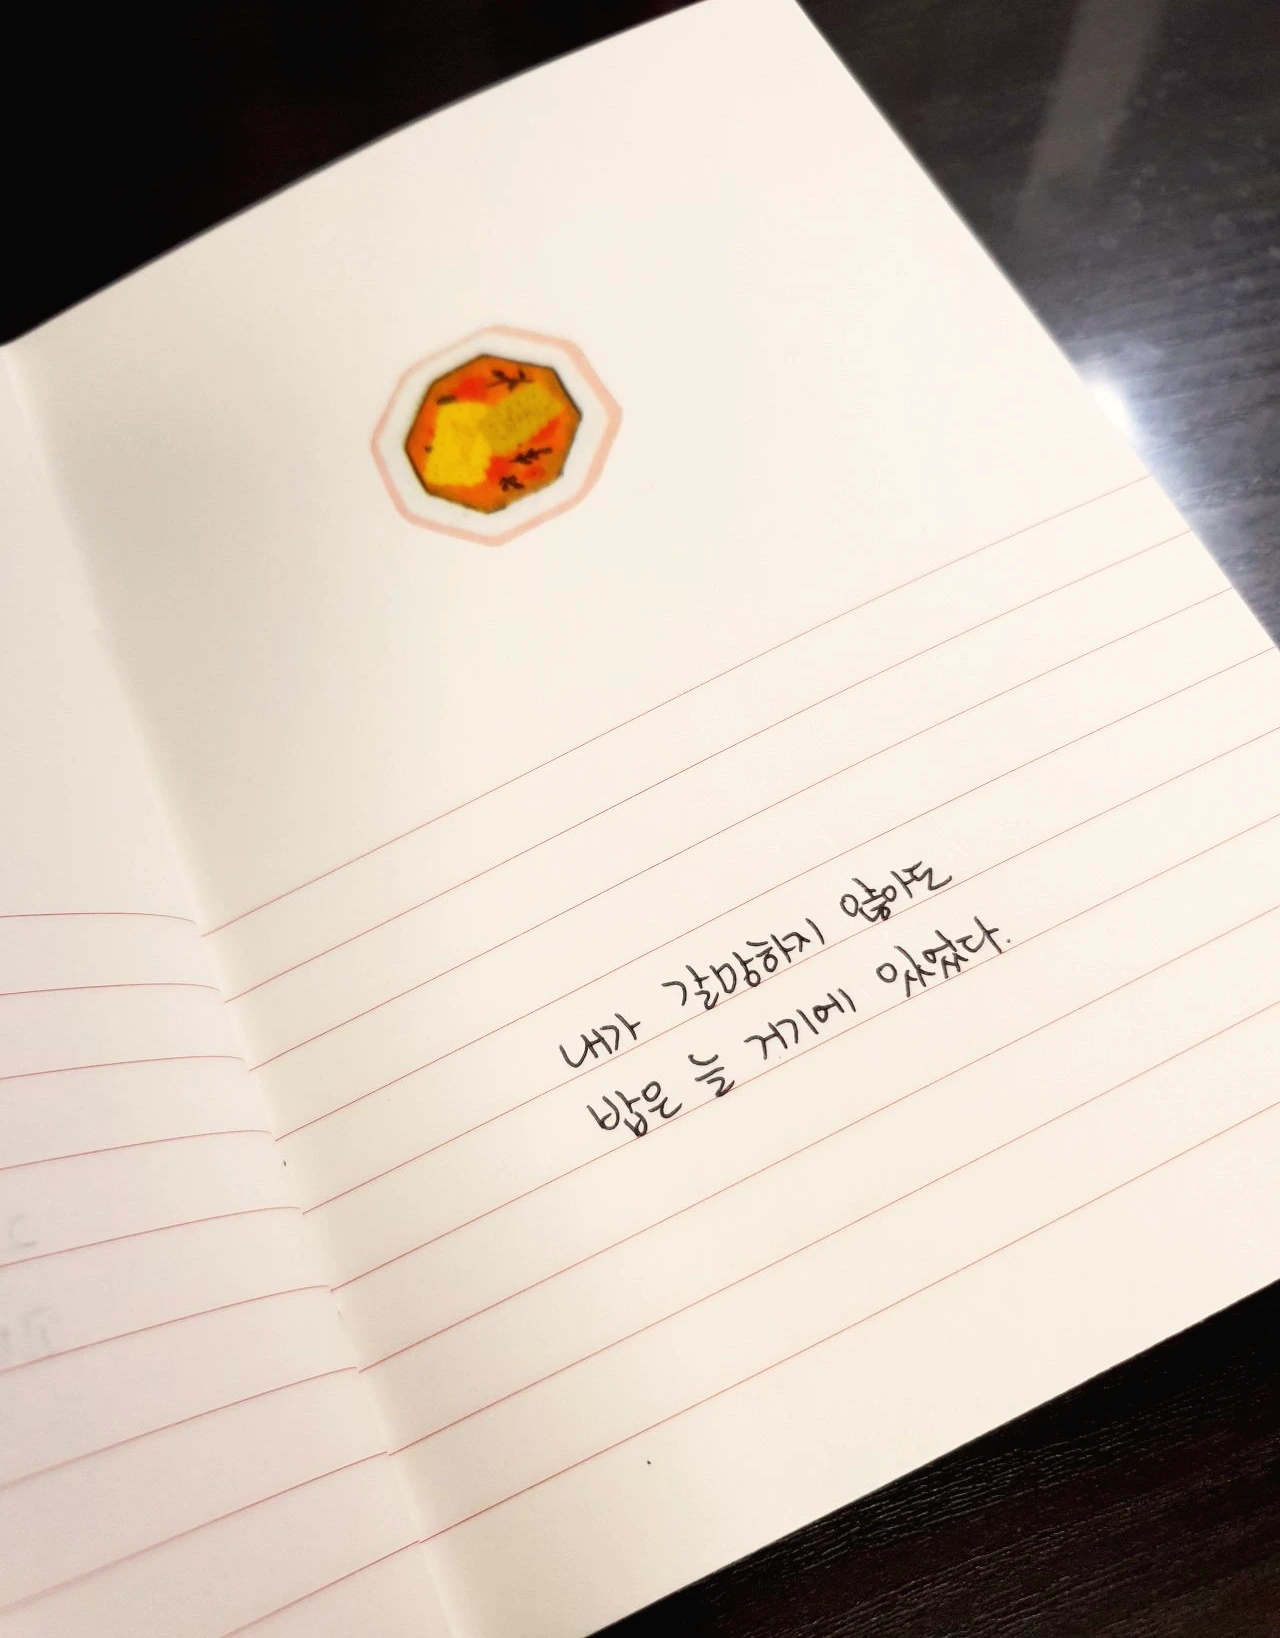 내가 갈망하지 않아도
밥은 늘 거기에 있었다.